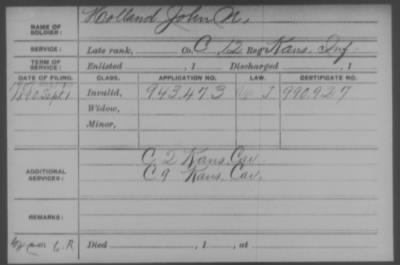 NAME OF SOLDIER: Holland, John N.
SERVICE: Late rank, Co. C, 12 Reg't Kans. Inf.
TERM OF SERVICE: Enlisted , 1 Discharged , 1
DATE OF FILING. CLASS. APPLICATION NO. LAW. CERTIFICATE NO.
1890 Sept 1 Invalid, 943.473 J 990.927
Widow,
Minor,
ADDITIONAL SERVICES: C 2 Kans. Cav.
C 9 Kans. Cav.
REMARKS:
Died , 1 , at